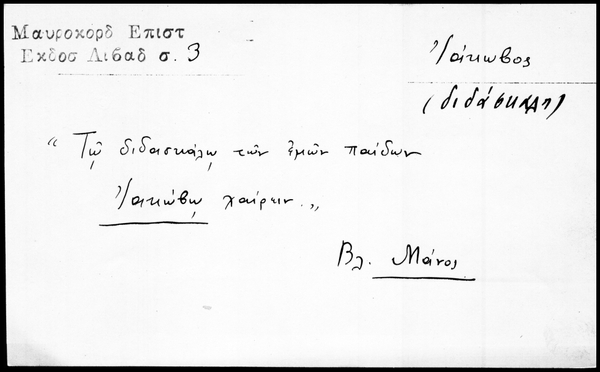 Μαυροκορδ Επιστ
Εκδοσ Λιβαδ σ. 3
Ἰάκωβος
(διδάσκαλος)
“ Τῷ διδασκάλῳ τῶν ἐμῶν παίδων
Ἰακώβῳ χαίρειν.„
Βλ. Μάνος